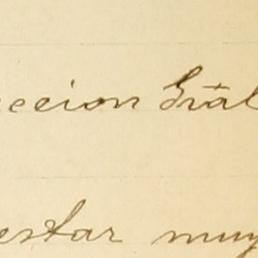 eccion Grāl
estar muy